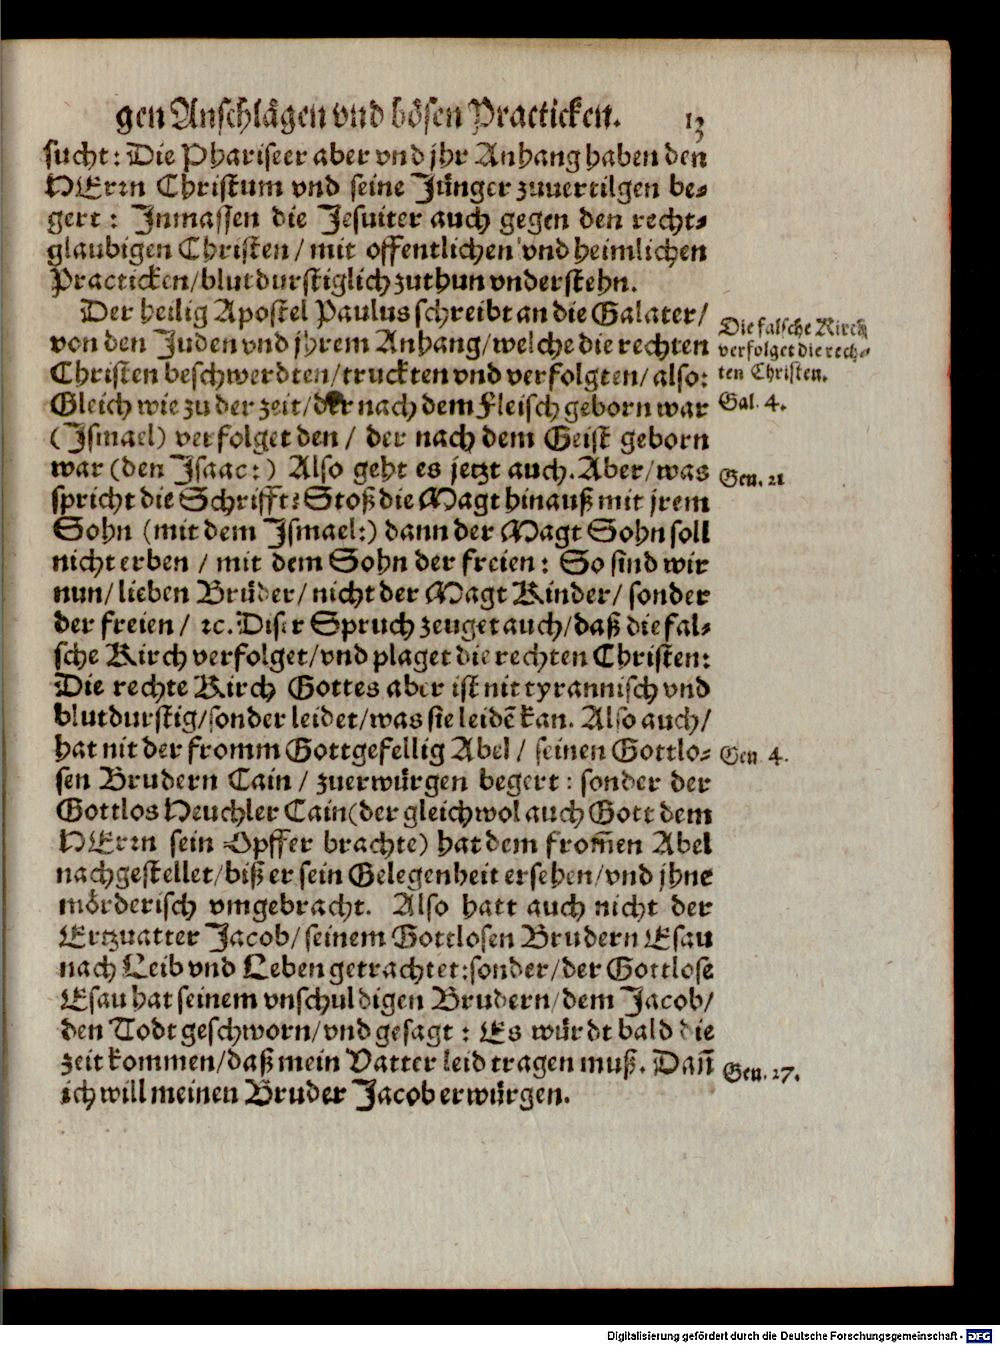 gen Anschlågen vnd bôsen Practicken. 13
sucht: Die Phariseer aber vnd jhr Anhang haben den
HErrn Christum vnd seine Jünger zuuertilgen be-
gert: Inmassen die Jesuiter auch gegen den recht-
glaubigen Christen/ mit offentlichen vnd heimlichen
Practicken/ blutdurstiglich zuthun vnderstehn.
Der heilig Apostel Paulus schreibt an die Galater/
von den Juden vnd jhrem Anhang/ welche die rechten
Christen beschwerdten/ truckten vnd verfolgten/ also:
Gleich wie zu der zeit/ der nach dem Fleisch geborn war
(Ismael) verfolget den/ der nach dem Geist geborn
war (den Isaac:) Also geht es jetzt auch. Aber/ was
spricht die Schrifft? Stoß die Magt hinauß mit jrem
Sohn (mit dem Ismael:) dann der Magt Sohn soll
nicht erben/ mit dem Sohn der freien: So sind wir
nun/ lieben Brüder/ nicht der Magt Kinder/ sonder
der freien/ ꝛc. Diser Spruch zeuget auch/ daß die fal-
sche Kirch verfolget/ vnd plaget die rechten Christen:
Die rechte Kirch Gottes aber ist nit tyrannisch vnd
blutdurstig/ sonder leidet/ was sie leidē kan. Also auch/
hat nit der fromm Gottgefellig Abel/ seinen Gottlo-
sen Brudern Cain/ zuerwürgen begert: sonder der
Gottlos Heuchler Cain (der gleichwol auch Gott dem
HErrn sein Opffer brachte) hat dem from̃en Abel
nachgestellet/ biß er sein Gelegenheit ersehen/ vnd jhne
mörderisch vmgebracht. Also hatt auch nicht der
Ertzuatter Jacob/ seinem Gottlosen Brudern Esau
nach Leib vnd Leben getrachtet: sonder/ der Gottlose
Esau hat seinem vnschuldigen Brudern/ dem Jacob/
den Todt geschworn/ vnd gesagt: Es würdt bald die
zeit kommen/ daß mein Vatter leid tragen muß. Dañ
ich will meinen Bruder Jacob erwürgen.
Die falsche Kirch
verfolget die rech-
ten Christen.
Gal. 4.
Gen. 21
Gen. 4.
Gen. 27.
Digitalisierung gefördert durch die Deutsche Forschungsgemeinschaft - DFG